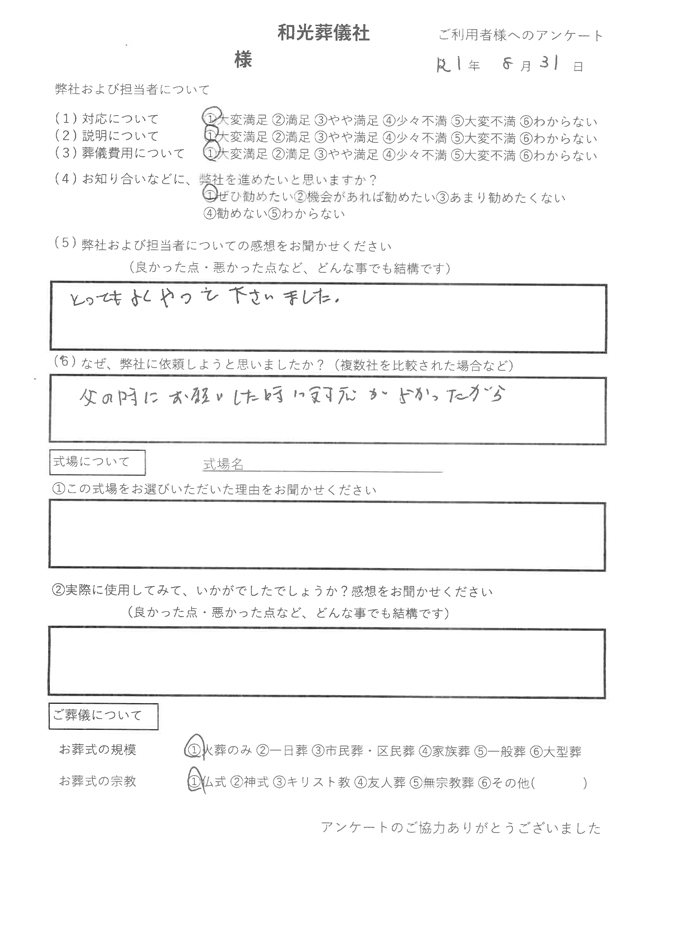 和光葬儀社
ご利用者様へのアンケート
様
R1年 8月31日
弊社および担当者について
(1)対応について ①大変満足 ②満足 ③やや満足 ④少々不満 ⑤大変不満 ⑥わからない
(2)説明について ①大変満足 ②満足 ③やや満足 ④少々不満 ⑤大変不満 ⑥わからない
(3)葬儀費用について ①大変満足 ②満足 ③やや満足 ④少々不満 ⑤大変不満 ⑥わからない
(4)お知り合いなどに、弊社を進めたいと思いますか？
①ぜひ勧めたい②機会があれば勧めたい③あまり勧めたくない
④勧めない⑤わからない
(5)弊社および担当者についての感想をお聞かせください
（良かった点・悪かった点など、どんな事でも結構です）
とってもよくやって下さいました。
(6)なぜ、弊社に依頼しようと思いましたか？（複数社を比較された場合など）
父の時にお願いした時に対応がよかったから
式場について 式場名
①この式場をお選びいただいた理由をお聞かせください
②実際に使用してみて、いかがでしたでしょうか？感想をお聞かせください
（良かった点・悪かった点など、どんな事でも結構です）
ご葬儀について
お葬式の規模 ①火葬のみ ②一日葬 ③市民葬・区民葬 ④家族葬 ⑤一般葬 ⑥大型葬
お葬式の宗教 ①仏式 ②神式 ③キリスト教 ④友人葬 ⑤無宗教葬 ⑥その他( )
アンケートのご協力ありがとうございました